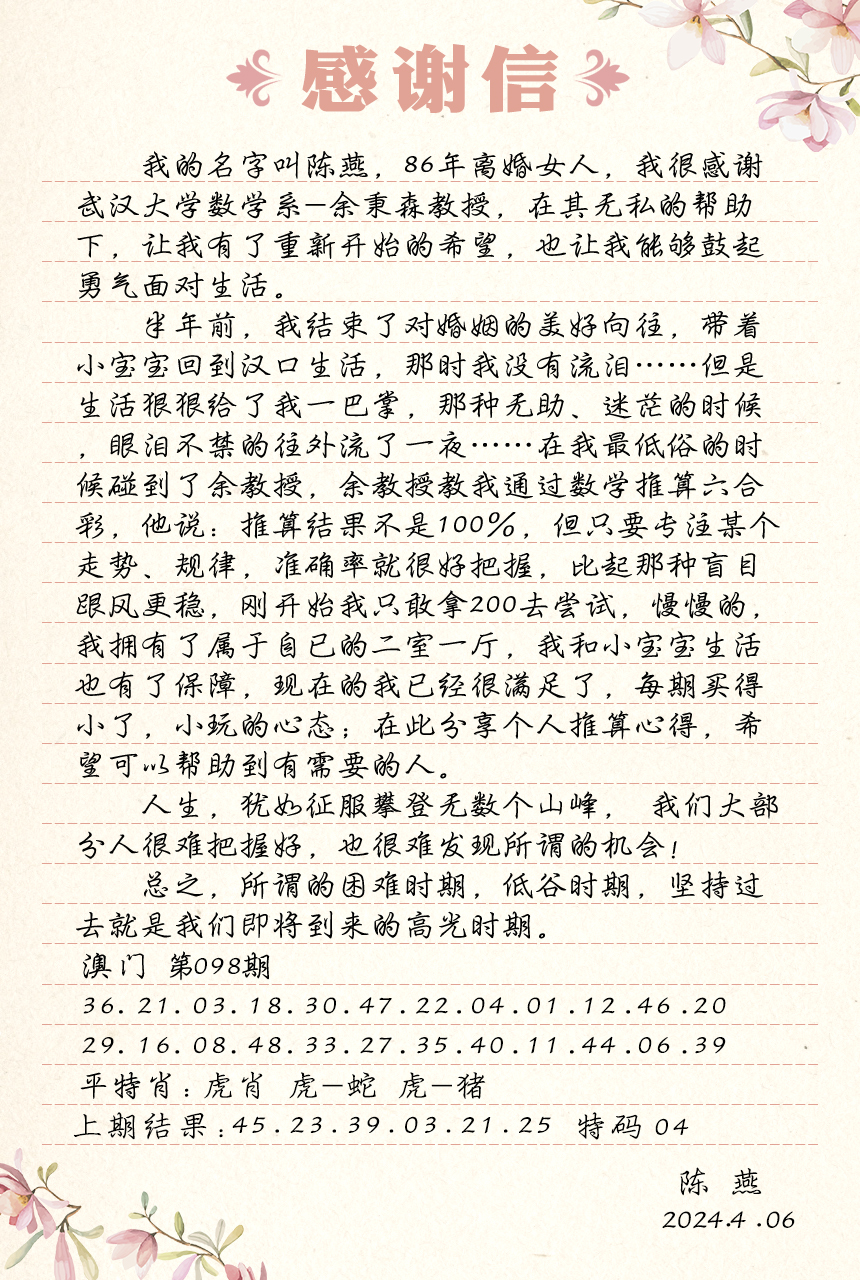 感谢信
我的名字叫陈燕，86年离婚女人，我很感谢
武汉大学数学系—余秉森教授，在其无私的帮助
下，让我有了重新开始的希望，也让我能够鼓起
勇气面对生活。
半年前，我结束了对婚姻的美好向往，带着
小宝宝回到汉口生活，那时我没有流泪……但是
生活狠狠给了我一巴掌，那种无助、迷茫的时候
，眼泪不禁的往外流了一夜……在我最低俗的时
候碰到了余教授，余教授教我通过数学推算六合
彩，他说：推算结果不是100%，但只要专注某个
走势、规律，准确率就很好把握，比起那种盲目
跟风更稳，刚开始我只敢拿200去尝试，慢慢的，
我拥有了属于自己的二室一厅，我和小宝宝生活
也有了保障，现在的我已经很满足了，每期买得
小了，小玩的心态；在此分享个人推算心得，希
望可以帮助到有需要的人。
人生，犹如征服攀登无数个山峰， 我们大部
分人很难把握好，也很难发现所谓的机会！
总之，所谓的困难时期，低谷时期，坚持过
去就是我们即将到来的高光时期。
澳门 第098期
36.21.03.18.30.47.22.04.01.12.46.20
29.16.08.48.33.27.35.40.11.44.06.39
平特肖：虎肖 虎—蛇 虎—猪
上期结果：45.23.39.03.21.25 特码 04
陈 燕
2024.4.06